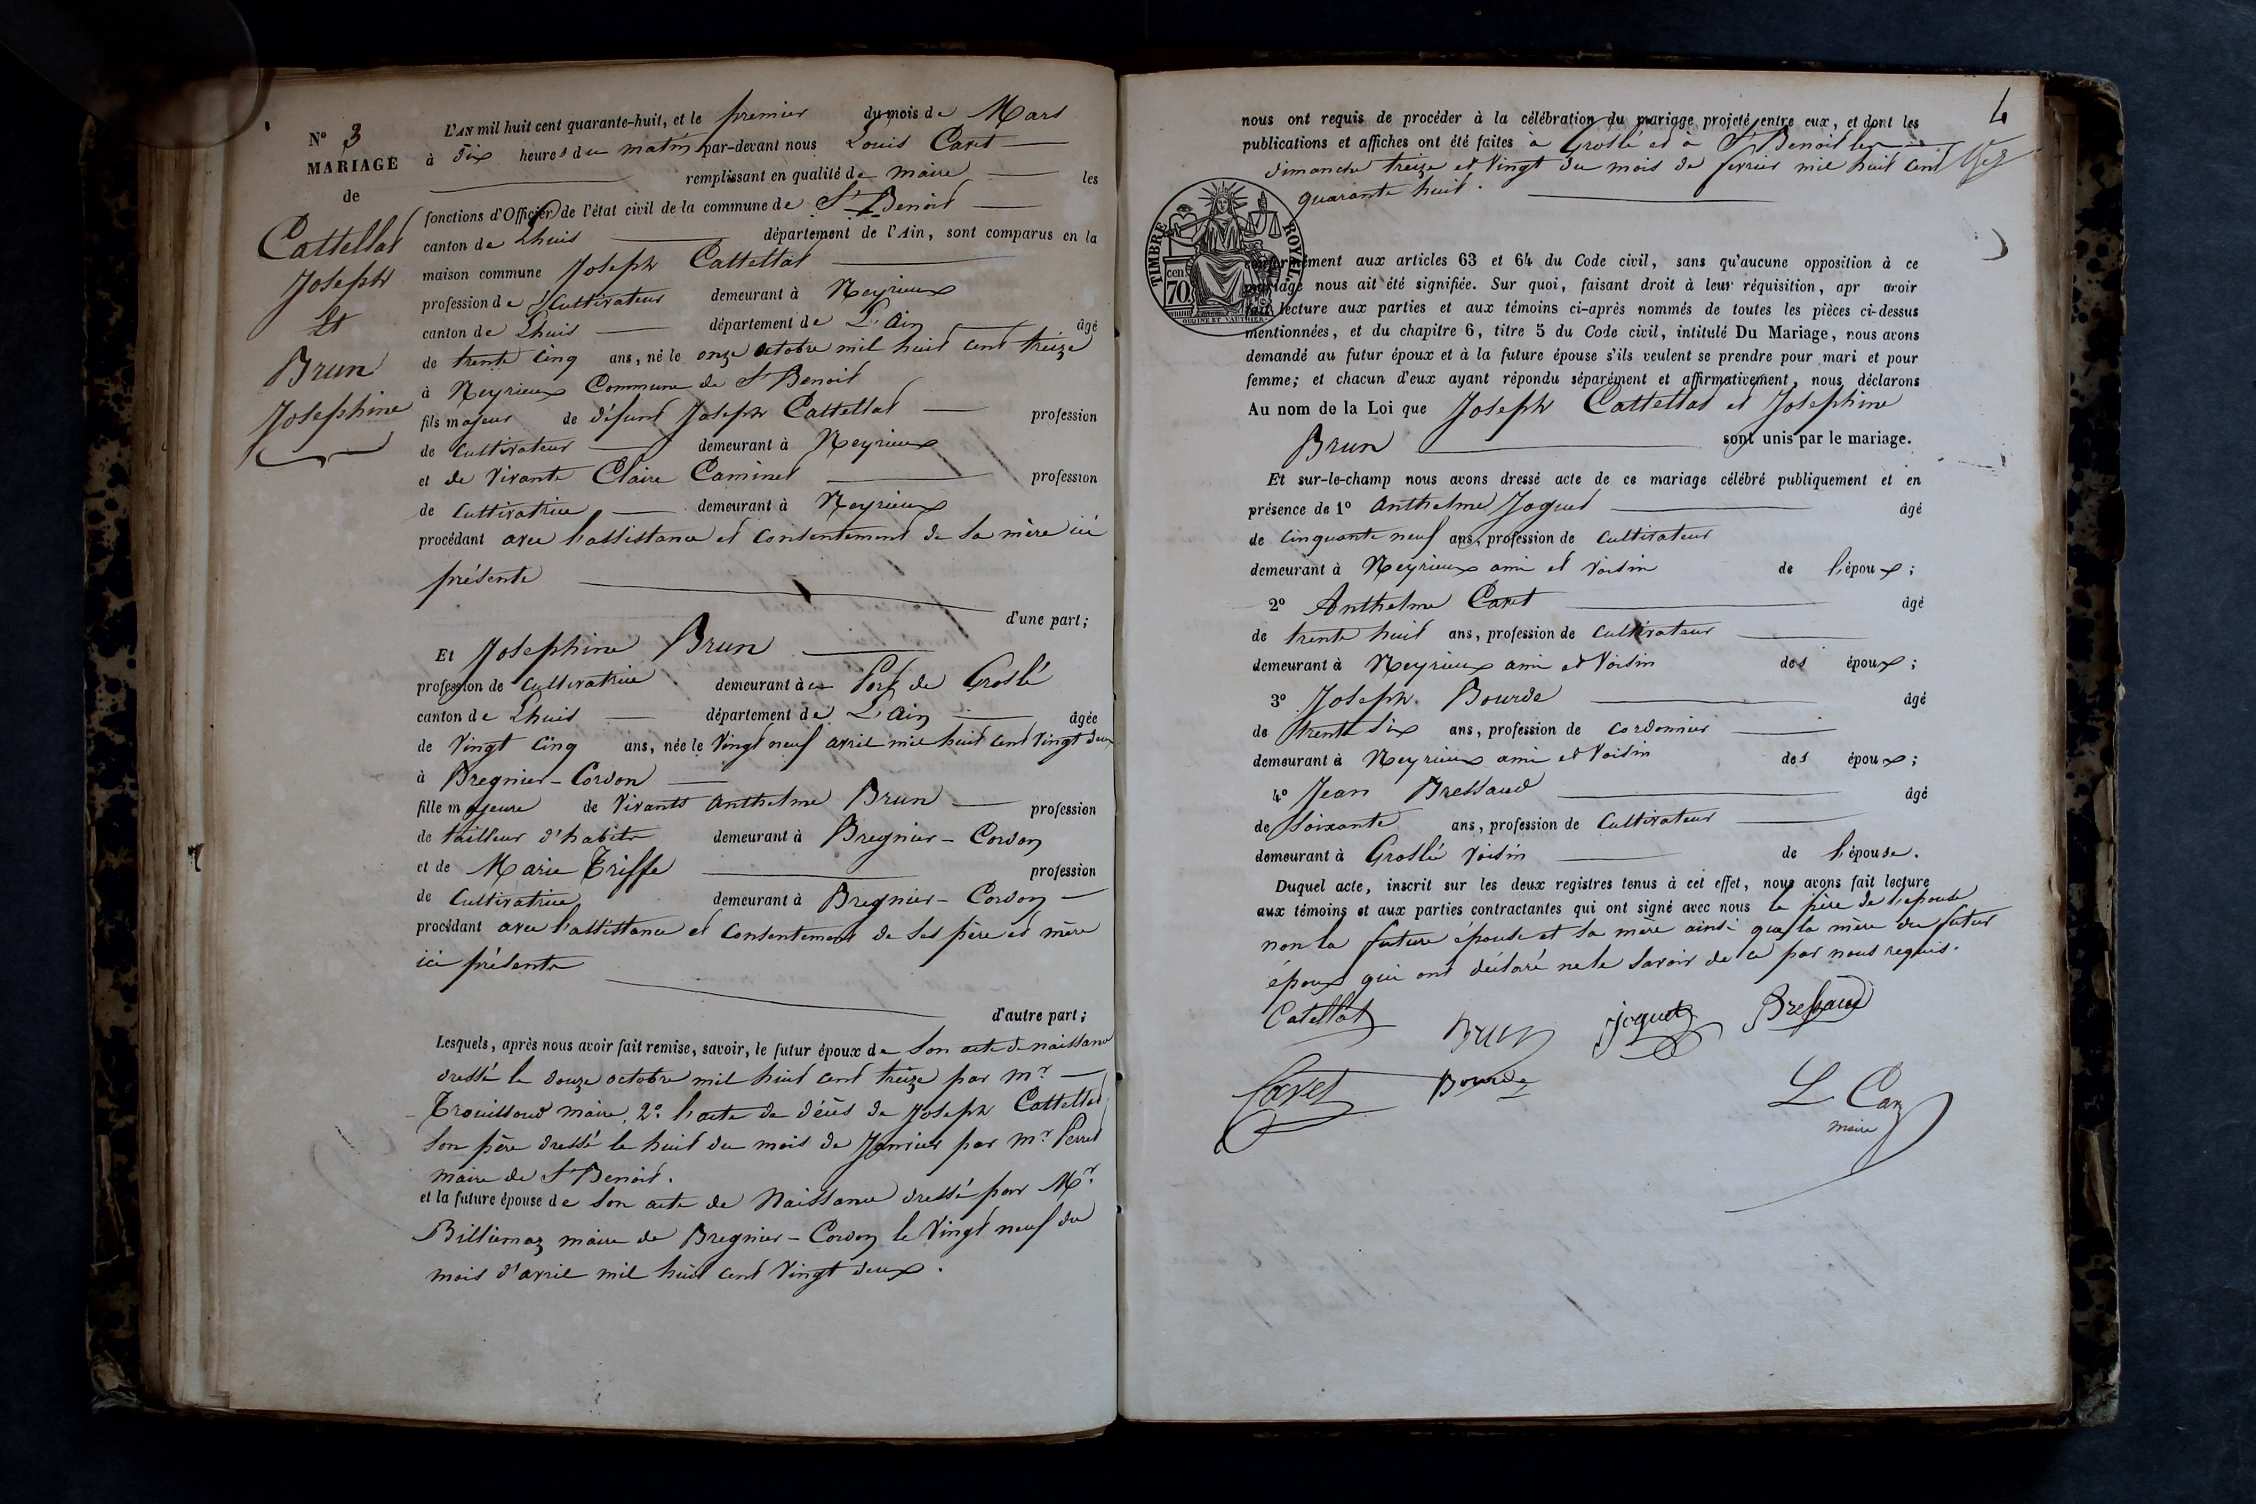 N° 3
MARIAGE
de
Cattellat
Joseph
Et
Brun
Josephine
L'AN mil huit cent quarante-huit, et le premier du mois de Mars
à dix heures du matin par-devant nous Louis Caret
remplissant en qualité de maire les
fonctions d'Officier de l'état civil de la commune de St Benoit
canton de Lhuis département de l'Ain, sont comparus en la
maison commune Joseph Cattellat
profession de Cultivateur demeurant à Neyrieux
canton de Lhuis département de L'ain âgé
de trente cinq ans, né le onze octobre mil huit cent treize
à Neyrieux Commune de St Benoit
fils majeur de défunt Joseph Cattellat profession
de cultivateur demeurant à Neyrieux
et de vivante Claire Caminet profession
de cultivatrice demeurant à Neyrieux
procédant avec l'assistance et consentement de sa mère ici
présente
d'une part;
Et Josephine Brun
profession de cultivatrice demeurant à Port de Groslé
canton de Lhuis département de L'ain âgée
de vingt cinq ans, née le vingt neuf avril mil huit cent vingt deux
à Bregnier-Cordon
fille majeure de vivants anthelme Brun profession
de tailleur d'habits demeurant à Bregnier-Cordon
et de Marie Triffe profession
de cultivatrice demeurant à Bregnier-Cordon
procédant avec l'assistance et consentement de ses père et mère
ici présents
d'autre part;
Lesquels, après nous avoir fait remise, savoir, le futur époux de son acte de naissance
dressé le douze octobre mil huit cent treize par mr
Trouilloud maire, 2° l'acte de décès de Joseph Cattellat
son père dressé le huit du mois de Janvier par mr Perret
maire de St Benoit.
et la future épouse de son acte de Naissance dressé par Mr
Billiemaz maire de Bregnier-Cordon le vingt neuf du
mois d'avril mil huit cent vingt deux.
4
nous ont requis de procéder à la célébration du mariage projeté entre eux, et dont les
publications et affiches ont été faites à Groslé et à St Benoit les
dimanche treize et vingt du mois de fevrier mil huit cent
quarante huit.
TIMBRE ROYAL
70 cen
conformément aux articles 63 et 64 du Code civil, sans qu'aucune opposition à ce
mariage nous ait été signifiée. Sur quoi, faisant droit à leur réquisition, apr avoir
fait lecture aux parties et aux témoins ci-après nommés de toutes les pièces ci-dessus
mentionnées, et du chapitre 6, titre 5 du Code civil, intitulé Du Mariage, nous avons
demandé au futur époux et à la future épouse s'ils veulent se prendre pour mari et pour
femme; et chacun d'eux ayant répondu séparément et affirmativement, nous déclarons
Au nom de la Loi que Joseph Cattellat et Josephine
Brun sont unis par le mariage.
Et sur-le-champ nous avons dressé acte de ce mariage célébré publiquement et en
présence de 1° Anthelme Joguet âgé
de cinquante neuf ans, profession de cultivateur
demeurant à Neyrieux ami et voisin de l'époux;
2° Anthelme Caret âgé
de trente huit ans, profession de cultivateur
demeurant à Neyrieux ami et voisin des époux;
3° Joseph Bourde âgé
de trente six ans, profession de cordonnier
demeurant à Neyrieux ami et voisin des époux;
4° Jean Bressaud âgé
de soixante ans, profession de cultivateur
demeurant à Groslée voisin de l'épouse.
Duquel acte, inscrit sur les deux registres tenus à cet effet, nous avons fait lecture
aux témoins et aux parties contractantes qui ont signé avec nous le père de l'épouse
non la future épouse et sa mere ainsi que la mère du futur
époux qui ont déclaré ne le savoir de ce par nous requis.
Catellat Brun Joguet Bressaud
Caret Bourde L Car
maire